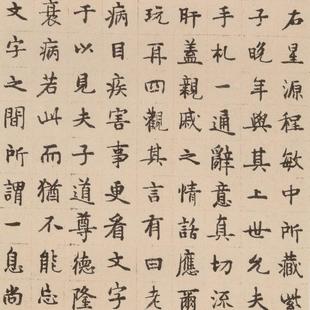 右星源程敏中所藏紫
子晚年與其上世允夫
手札一通辭意真切流
肝蓋親戚之情話應爾
玩再四觀其言有曰老
病目疾害事更看文字
于以見夫子道尊德隆
衰病若此而猶不能忘
文字之間所謂一息尚